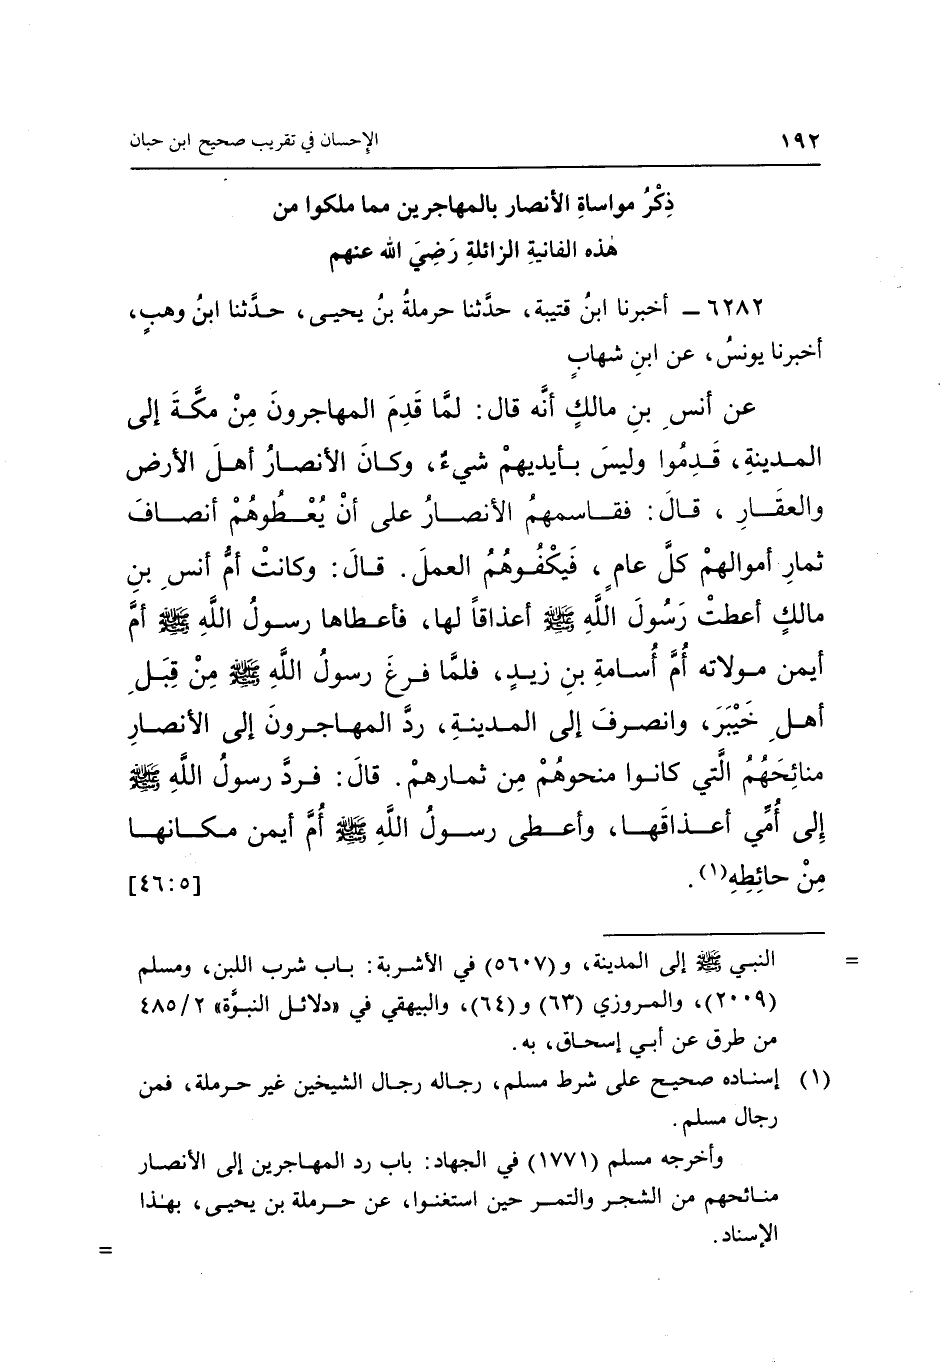 ١٩٢ الإحسان في تقريب صحيح ابن حبان
ذِكْرُ مواساةِ الأنصار بالمهاجرين مما ملكوا من
هٰذه الفانيةِ الزائلةِ رَضِيَ الله عنهم
٦٢٨٢ ـ أخبرنا ابنُ قتيبة، حدَّثنا حرملةُ بنُ يحيـى، حـدَّثنا ابنُ وهبٍ،
أخبرنا يونسُ، عن ابنِ شهابٍ
عن أنسِ بنِ مالكٍ أنَّه قال: لمَّا قَدِمَ المهاجرونَ مِنْ مكَّةَ إلى
المـدينةِ، قَـدِمُوا وليسَ بـأيديهمْ شيءٌ، وكـانَ الأنصـارُ أهـلَ الأرض
والعقَـارِ، قـالَ: فقـاسمهمُ الأنصـارُ على أنْ يُعْـطُوهُمْ أنصـافَ
ثمارِ أموالهمْ كلَّ عامٍ، فَيَكْفُـوهُمُ العملَ. قـالَ: وكانتْ أمُّ أنسِ بنِ
مالكٍ أعطتْ رَسُولَ اللَّهِ ﷺ أعذاقاً لها، فأعـطاها رسـولُ اللَّهِ ﷺ أمَّ
أيمن مـولاته أُمَّ أُسـامةِ بنِ زيـدٍ، فلمَّا فـرغَ رسولُ اللَّهِ ﷺ مِنْ قِبَـلِ
أهـلِ خَيْبَرَ، وانصـرفَ إلى المـدينـةِ، ردَّ المهـاجـرونَ إلى الأنصـارِ
منائِحَهُمُ الَّتي كانـوا منحوهُمْ مِن ثمـارهمْ. قالَ: فـردَّ رسولُ اللَّهِ ﷺ
إلى أُمِّي أعـذاقَهـا، وأعـطى رسـولُ اللَّهِ ﷺ أمَّ أيمن مكـانهـا
مِنْ حائِطِهِ(١). [٤٦:٥]
= النبـي ﷺ إلى المدينة، و(٥٦٠٧) في الأشـربة: بـاب شرب اللبن، ومسلم
(٢٠٠٩)، والمـروزي (٦٣) و(٦٤)، والبيهقي في «دلائـل النبـوَّة» ٤٨٥/٢
من طرق عن أبـي إسحاق، به.
(١) إسنـاده صحيـح على شرط مسلم، رجـاله رجـال الشيخين غير حـرملة، فمن
رجال مسلم.
وأخرجه مسلم (١٧٧١) في الجهاد: باب رد المهـاجرين إلى الأنصار
منـائحهم من الشجـر والتمـر حين استغنـوا، عن حـرملة بن يحيـى، بهـٰذا
الإسناد.
=